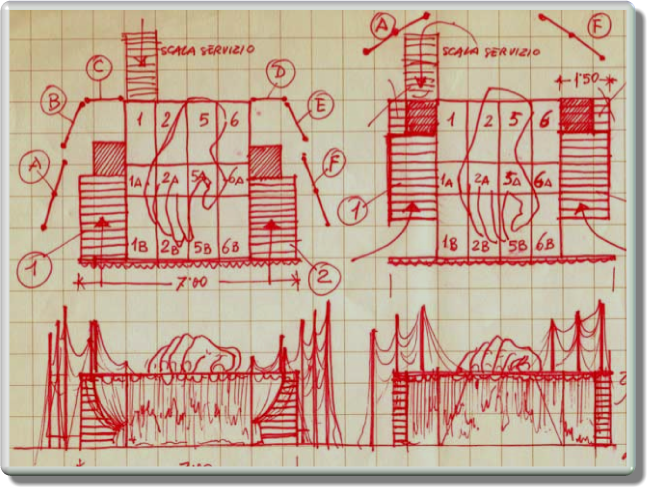 SCALA SERVIZIO
C
D
B
E
A
F
1 2 5 6
1A 2A 5A 6A
1B 2B 5B 6B
1
2
7'00
A
F
SCALA SERVIZIO
1'50
1 2 5 6
1A 2A 5A 6A
1B 2B 5B 6B
1